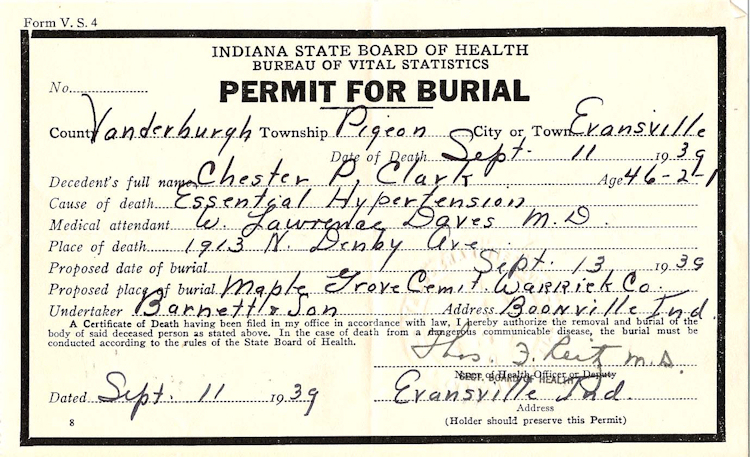 Form V. S. 4
INDIANA STATE BOARD OF HEALTH
BUREAU OF VITAL STATISTICS
No.
PERMIT FOR BURIAL
County Vanderburgh Township Pigeon City or Town Evansville
Date of Death Sept. 11 1939
Decedent's full name Chester P. Clark Age 46-2-1
Cause of death Essential Hypertension
Medical attendant W. Lawrence Daves M.D.
Place of death 1913 N. Denby Ave
Proposed date of burial Sept. 13 1939
Proposed place of burial Maple Grove Cemit. Warrick Co.
Undertaker Barnett & Son Address Boonville Ind.
A Certificate of Death having been filed in my office in accordance with law, I hereby authorize the removal and burial of the
body of said deceased person as stated above. In the case of death from a dangerous communicable disease, the burial must be
conducted according to the rules of the State Board of Health.
Thos. F. Reitz M.D.
Name of Health Officer or Deputy
SECT. BOARD OF HEALTH
Dated Sept. 11 1939 Evansville Ind.
Address
8 (Holder should preserve this Permit)